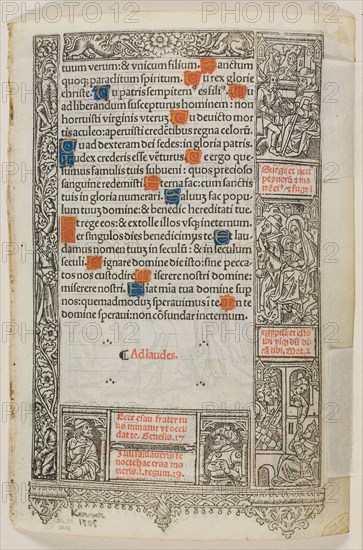 tuum verum: & vnicum filium. Sanctum
quoq; paraclitum spiritum. Tu rex glorie
christe. Tu patris sempitern⁹ es fili⁹. Tu
ad liberandum suscepturus hominem: non
horruisti virginis vterū. Tu deuicto mor
tis aculeo: aperuisti credētibus regna celorū.
Tu ad dexteram dei sedes: in gloria patris.
Iudex crederis esse vēturus. Te ergo que-
sumus famulis tuis subueni: quos precioso
sanguine redemisti. Eterna fac: cum sanctis
in gloria numerari. Saluū fac popu
lum tuū domine: & benedic hereditati tue
Et rege eos: & extolle illos vsq; ineternum.
Per singulos dies benedicimuste. Et lau-
damus nomen tuum in seculū: & in seculum
seculi. Dignare domine die isto: sine pecca-
to nos custodire Miserere nostri domine:
miserere nostri. Fiat mia tua domine sup
nos: quemadmodū sperauimus ī te. In te
domine speraui: non cōfundar ineternum.
Ad laudes.
Surge et acci
pe puerū ⁊ ma
trē ei⁹ ⁊ fuge ī
egyptū et esto
ibi vsq; dū di
cā tibi. Mat. 2
Ecce esau frater tu
us minatur vt occi
dat te. Genesis. 27
Nisi saluaueris te
nocte hac cras mo
rieris. 1. regum. 19.
Kerver
1505